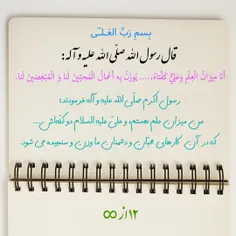 بِسمِ رَبِّ العَلــی
قال رسول الله صلّی الله علیه و آله:
أنَا میزانُ العِلمِ وَ عَلیٌّ کَفَّتاهُ،.... یُوزَنُ بِهِ أعْمالُ المُحِبّینَ لَنا وَ المُبغِضینَ لَنا.
رسول اکرم صلّی الله علیه و آله فرمودند:
من میزان علم هستم، و علی علیه السلام دو کفه‌اش...
که در آن کارهای محبّان و دشمنان ما وزن و سنجیده می شود.
۱۲ از ∞